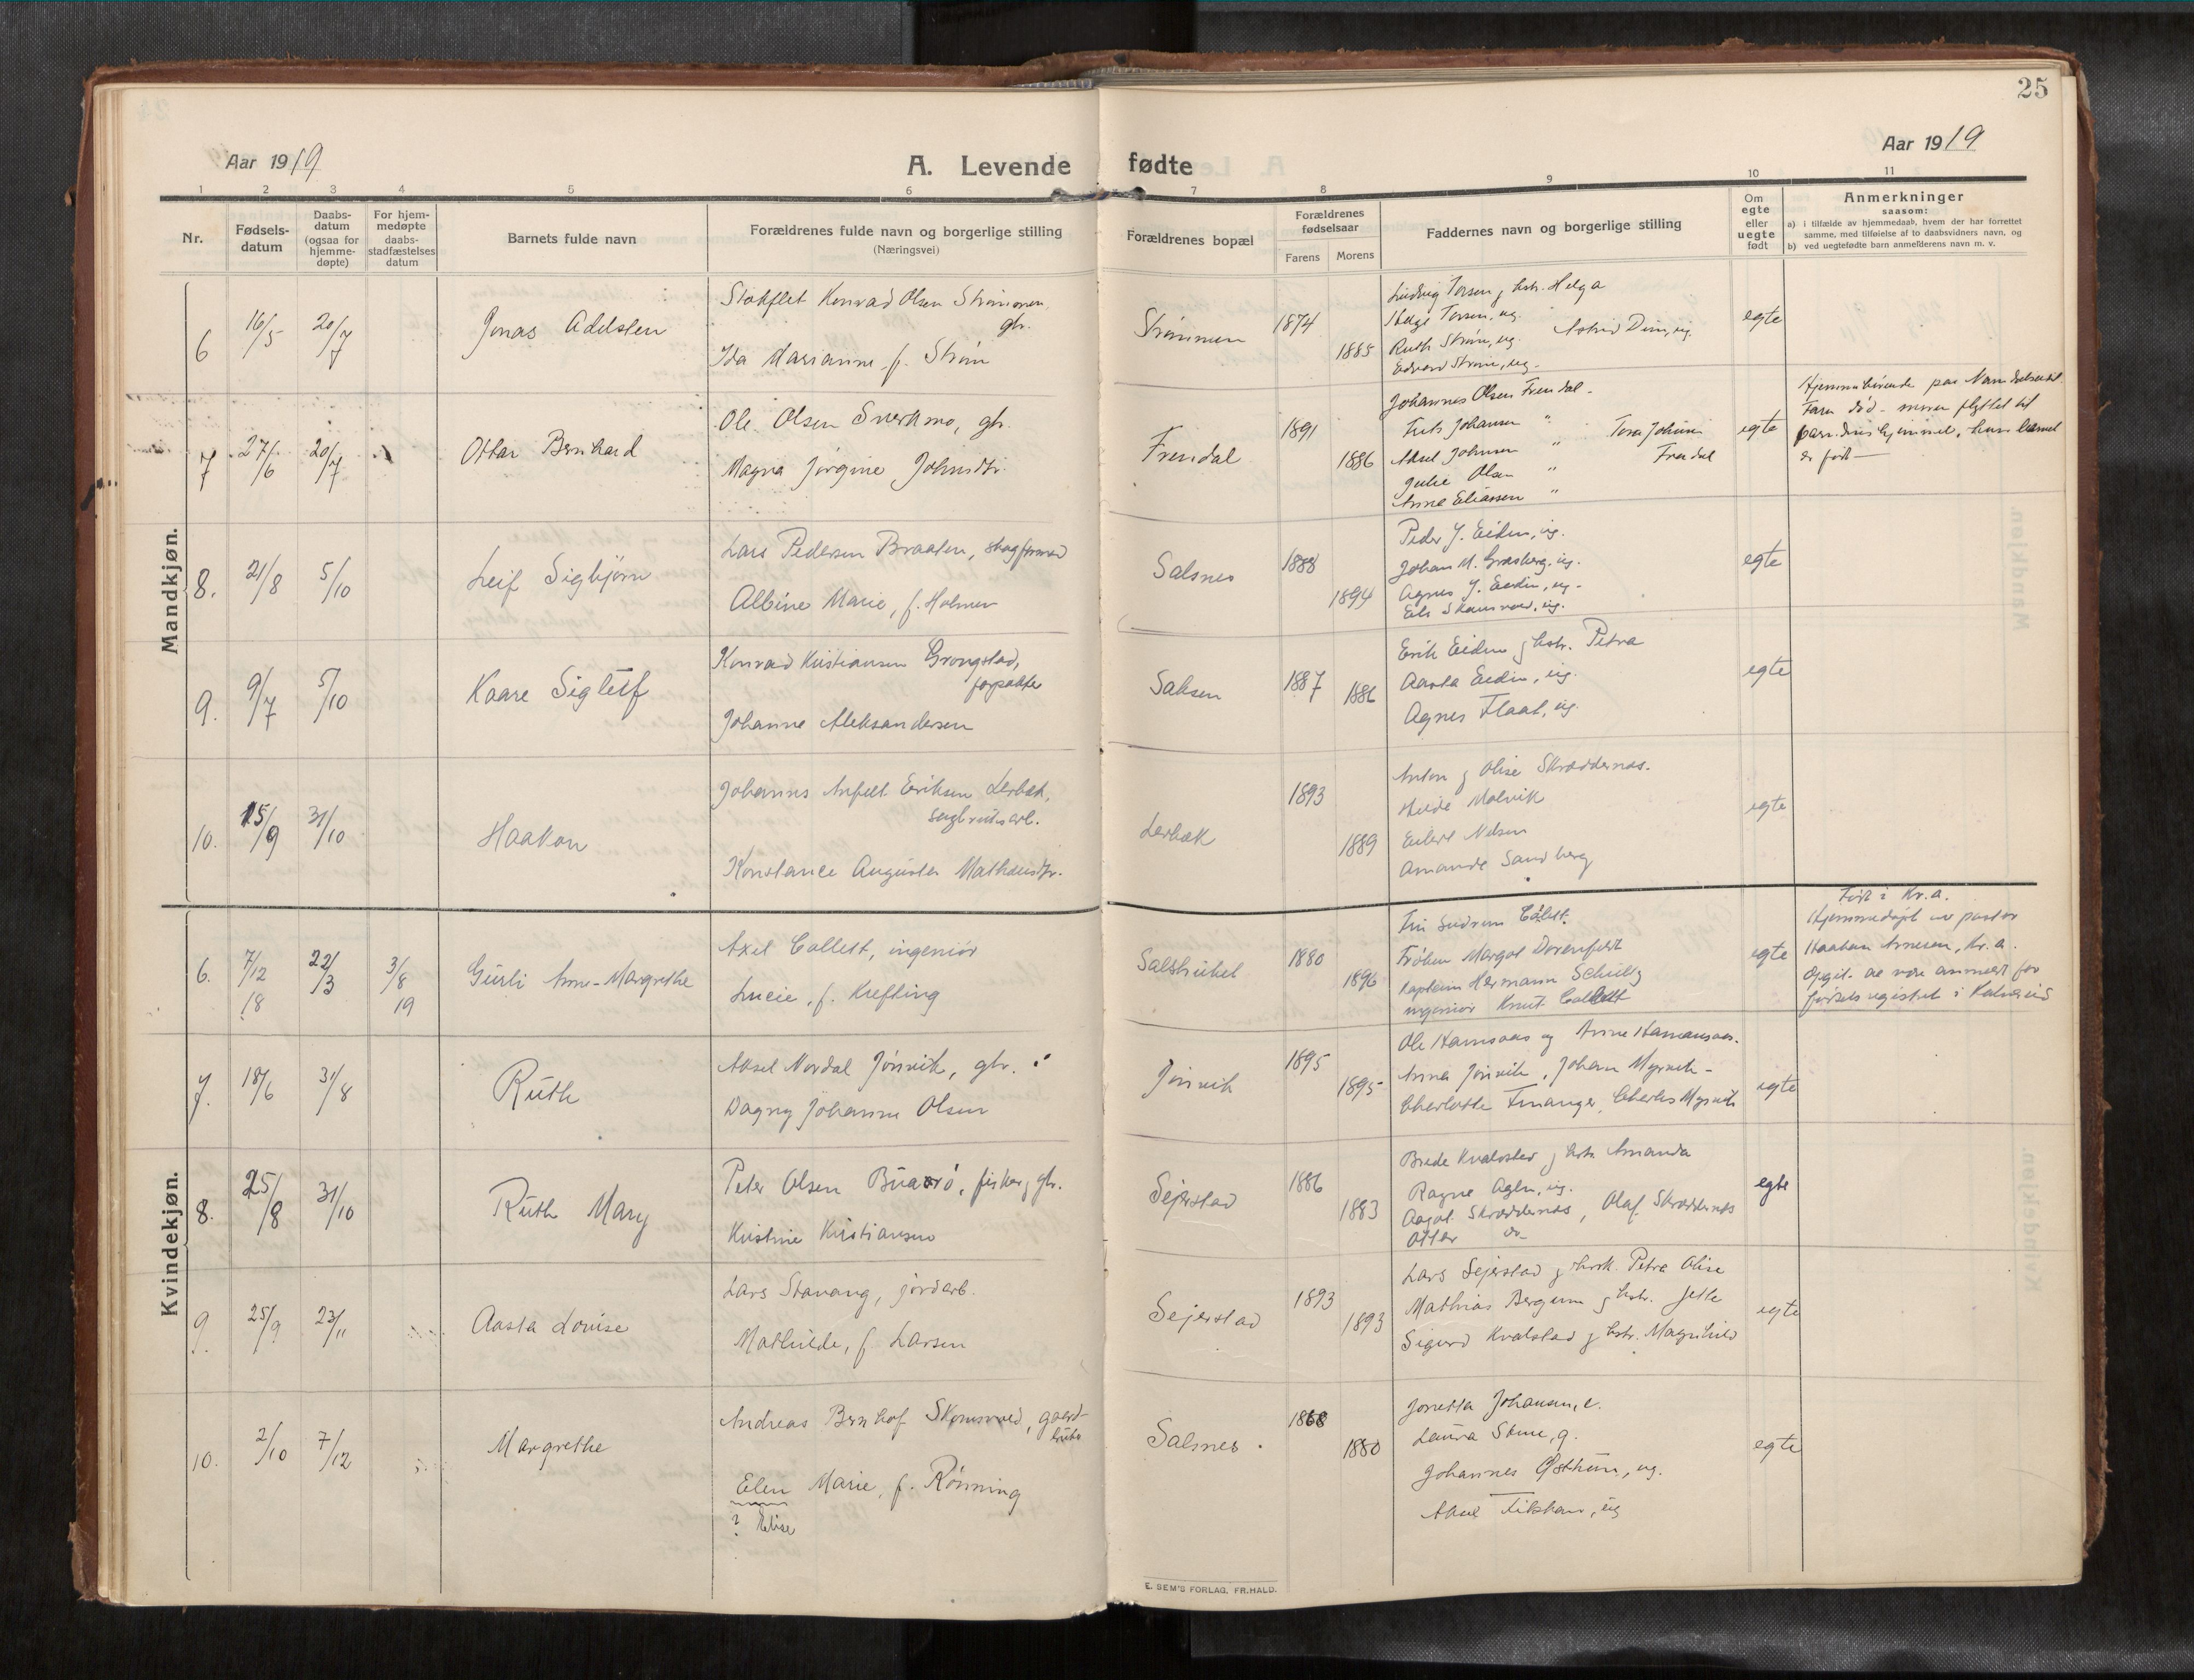 25
Aar 1919
A. Levende fødte
Aar 1919
1 2 3 4 5 6 7 8 9 10 11
Nr.
Fødsels-
datum
Daabs-
datum
(ogsaa for
hjemme-
døpte)
For hjem-
medøpte
daabs-
stadfæstelses
datum
Barnets fulde navn
Forældrenes fulde navn og borgerlige stilling
(Næringsvei)
Forældrenes bopæl
Forældrenes
fødselsaar
Farens Morens
Faddernes navn og borgerlige stilling
Om
egte
eller
uegte
født
Anmerkninger
saasom:
a) i tilfælde av hjemmedaab, hvem der har forrettet
samme, med tilføielse af to daabsvidners navn, og
b) ved uegtefødte barn anmelderens navn m. v.
Mandkjøn.
6 16/5 20/7 Jonas Adelsten
Konrad Olsen Strømmen
gbr.
Ida Marianne f. Strøm
Strømmen 1874 1885
Ludvig Torsen og hstr. Helga
Helge Torsen, ug.
Ruth Strøm, ug. Astrid
Edvard Strøm, ug.
egte
7 27/6 20/7 Ottar Bernhard
Ole Olsen Sverkmo, gbr.
Magna Jørgine Johnsdtr.
Frendal 1891 1886
Johannes Olsen Frendal
Johansen "
Aksel Johnsen "
Julie Olsen "
Anne Eliassen "
Frendal
egte
Hjemmehørende paa
Faren død - moren flyttet til
er født
8. 21/8 5/10 Leif Sigbjørn
Lars Pedersen Braaten,
Albine Marie, f. Holmen
Salsnes 1888 1894
Peder J. Eiden, ug.
Johan M. ug.
Agnes J. Eiden, ug.
egte
9. 9/7 5/10 Kaare Sigleif
Konrad Kristiansen Grongstad,
forpakter
Johanne Aleksandersen
Salsen 1887 1886
Erik Eiden og hstr. Petra
Aasta Eiden, ug.
Agnes Flaat, ug.
egte
10. 15/9 31/10 Haakon
Johannes Eriksen Lerbæk,
Konstance Augusta
Lerbæk 1893 1889
Anton og Olise Skræddernes.
Molvik
Eilert Nilsen
Amanda Sandberg
egte
Kvindekjøn.
6. 7/12 18 22/3 3/8 19 Gurli Anne-Margrethe
Axel Collett, ingeniør
Lucie, f. Kefting
Salsbruket 1880 1896
Collett.
Frøken Margot Dorenfeldt
Kaptein Hermann Schultz
ingeniør Knut Collett
egte
Født i Kr.a.
Hjemmedøpt av pastor
Haakon Arnesen, Kr.a.
7. 18/6 31/8 Ruth
Aksel Nordal Jønvik, gbr.
Dagny Johanne Olsen
Jønvik 1895 1895
Anna Jønvik, Johan Myrvik
Charlotte Finanger, Charles Myrvik
egte
8. 25/8 31/10 Ruth Mary
Peter Olsen Buarø, fisker og gbr.
Kristine Kristiansen
Sejerstad 1886 1883
Brede Kvalstad og hstr. Amanda
Ragna Agln, ug.
Aagot Skræddernes, Olaf Skræddernes
Otter do
egte
9. 25/9 23/11 Aasta Lovise
Lars Stavang, jordarb.
Mathilde, f. Larsen
Sejerstad 1893 1893
Lars Sejerstad og hstr. Petra Olise
Mathias Bergum og hstr. Jette
Sigurd Kvalstad og hstr. Magnhild
egte
10. 2/10 7/12 Margrethe
Andreas Bernhof Skomsvold, gaard-
bruker
Elen Marie, f. Rønning
? Elise
Salsnes. 1868 1880
Jonetta Johansen, e.
Laura g.
Johannes ug.
ug
egte
E. SEM'S FORLAG, FR.HALD.